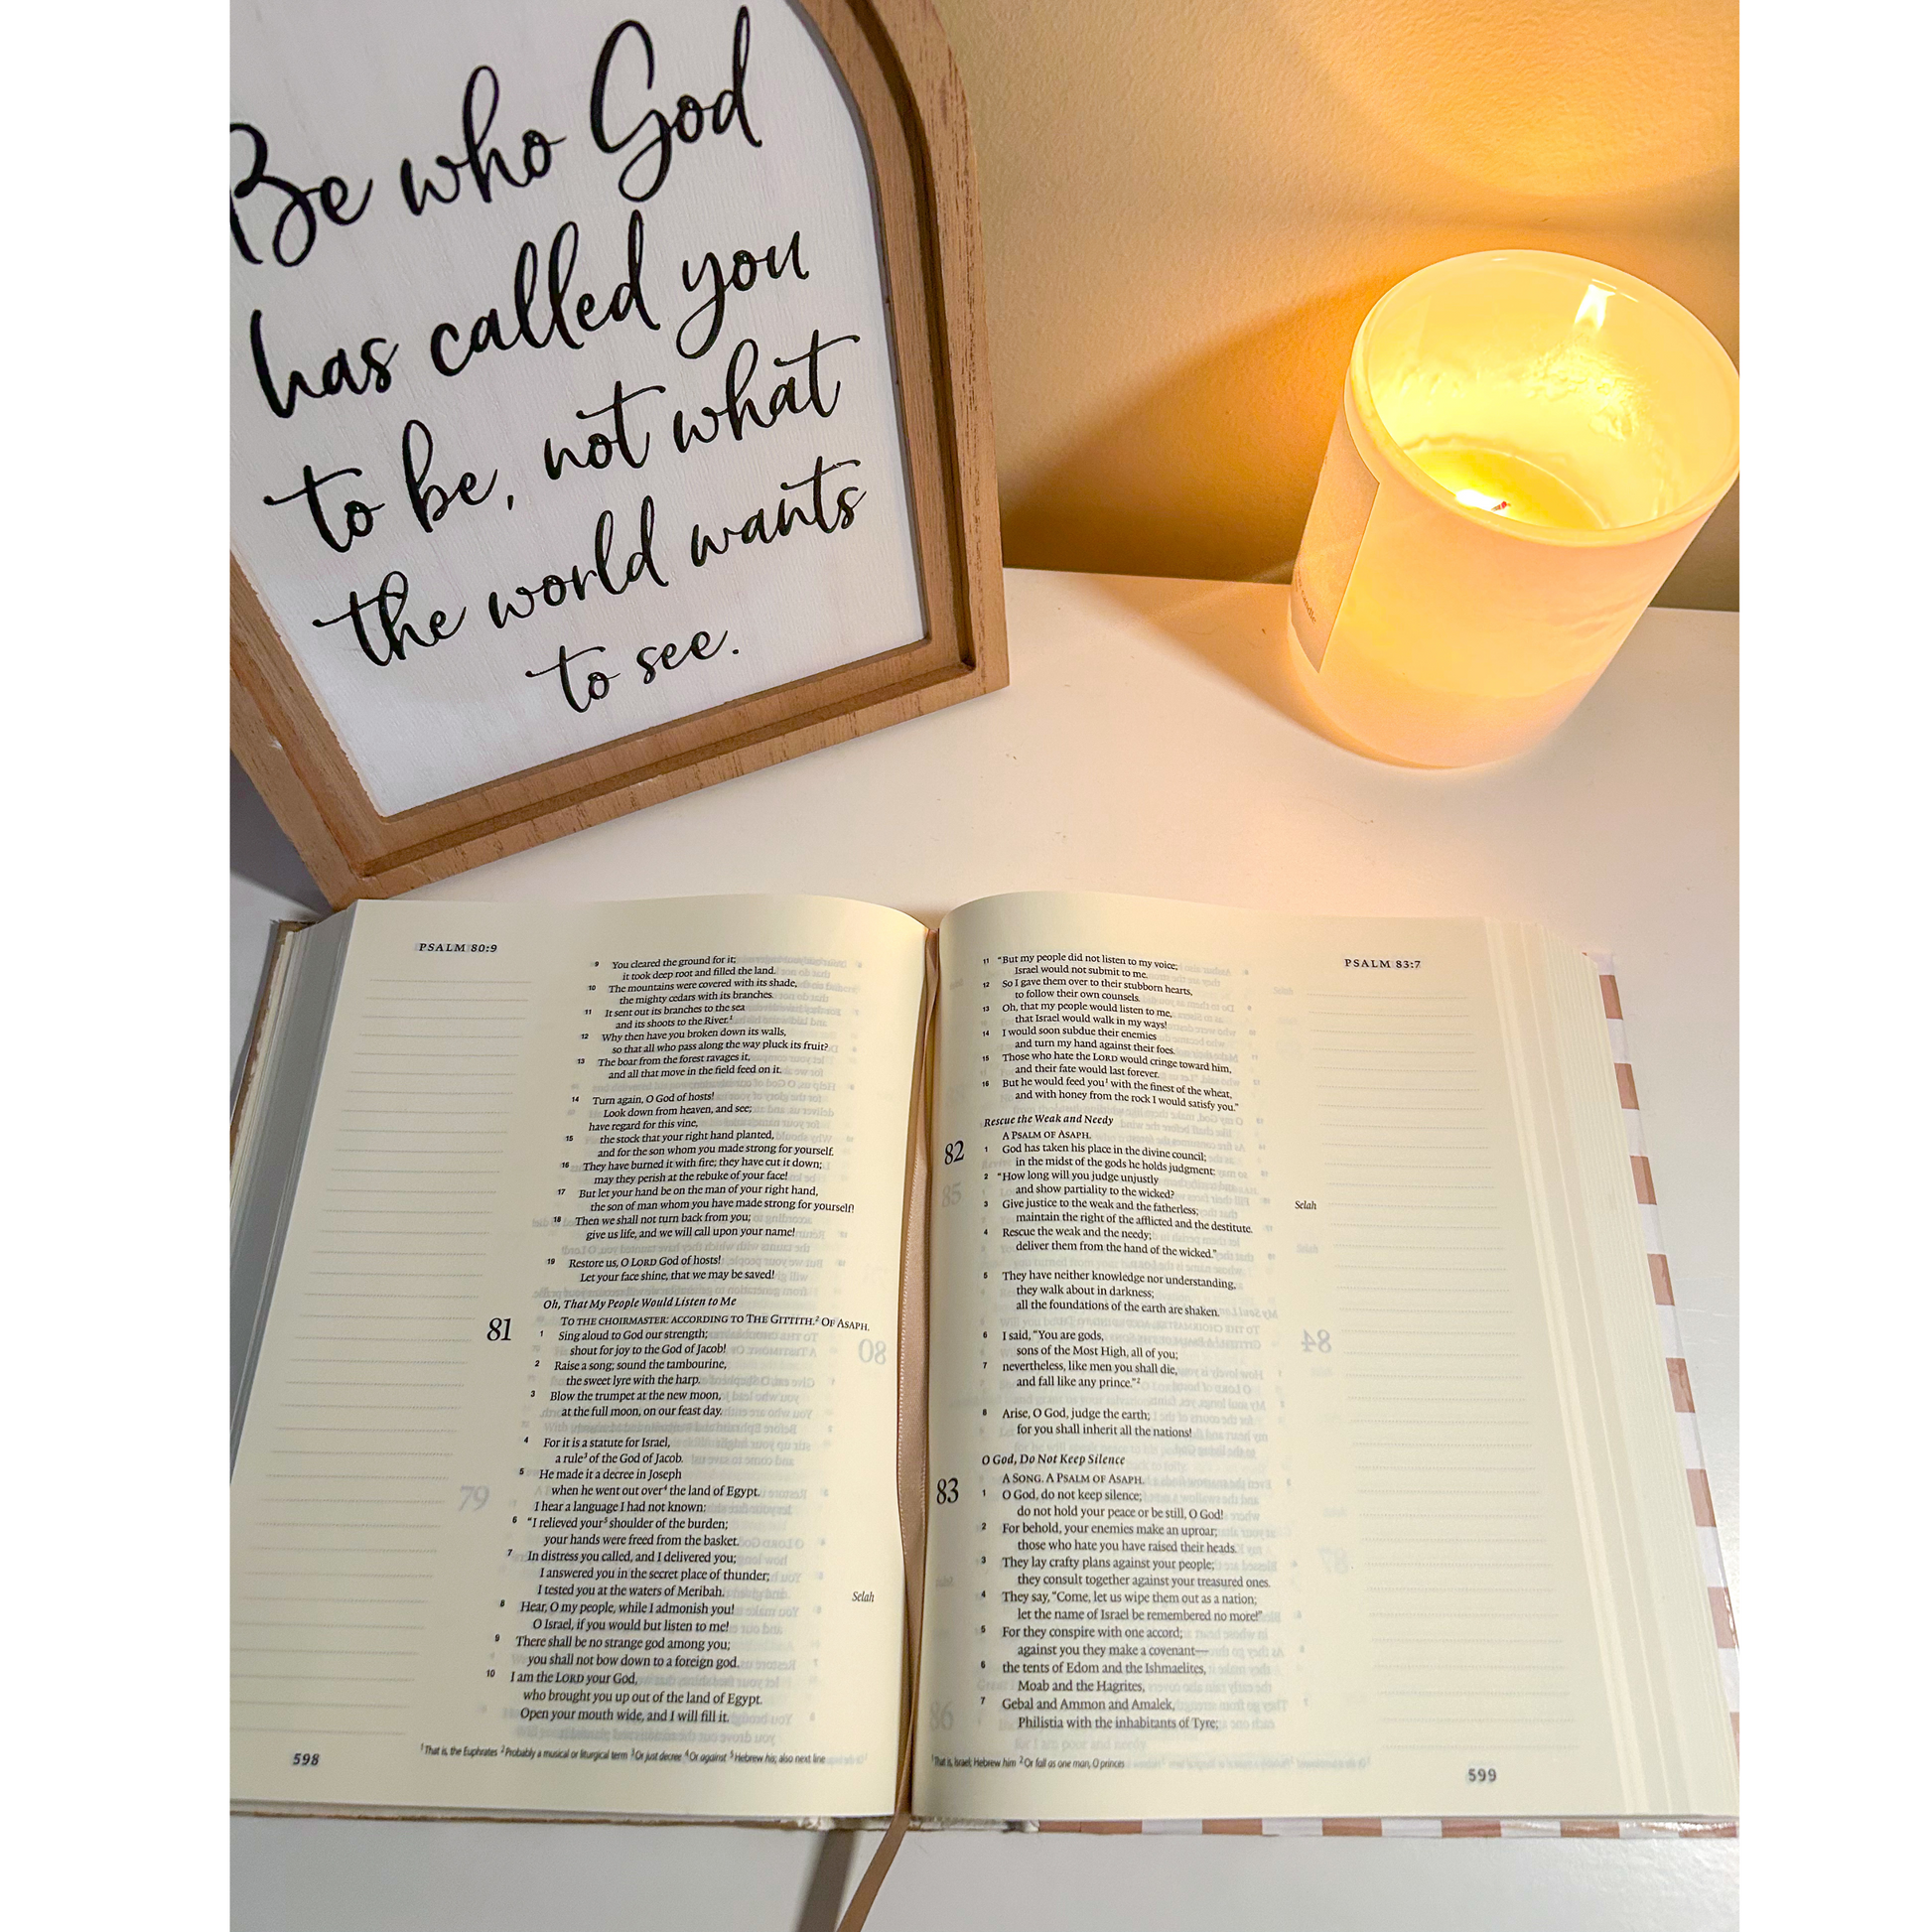 Be who God
has called you
to be, not what
the world wants
to see.
candle
PSALM 80:9
9 You cleared the ground for it;
it took deep root and filled the land.
10 The mountains were covered with its shade,
the mighty cedars with its branches.
11 It sent out its branches to the sea
and its shoots to the River.1
12 Why then have you broken down its walls,
so that all who pass along the way pluck its fruit?
13 The boar from the forest ravages it,
and all that move in the field feed on it.
14 Turn again, O God of hosts!
Look down from heaven, and see;
have regard for this vine,
15 the stock that your right hand planted,
and for the son whom you made strong for yourself.
16 They have burned it with fire; they have cut it down;
may they perish at the rebuke of your face!
17 But let your hand be on the man of your right hand,
the son of man whom you have made strong for yourself!
18 Then we shall not turn back from you;
give us life, and we will call upon your name!
19 Restore us, O LORD God of hosts!
Let your face shine, that we may be saved!
Oh, That My People Would Listen to Me
81 TO THE CHOIRMASTER: ACCORDING TO THE GITTITH.2 OF ASAPH.
1 Sing aloud to God our strength;
shout for joy to the God of Jacob!
2 Raise a song; sound the tambourine,
the sweet lyre with the harp.
3 Blow the trumpet at the new moon,
at the full moon, on our feast day.
4 For it is a statute for Israel,
a rule3 of the God of Jacob.
5 He made it a decree in Joseph
when he went out over4 the land of Egypt.
I hear a language I had not known:
6 "I relieved your5 shoulder of the burden;
your hands were freed from the basket.
7 In distress you called, and I delivered you;
I answered you in the secret place of thunder;
I tested you at the waters of Meribah. Selah
8 Hear, O my people, while I admonish you!
O Israel, if you would but listen to me!
9 There shall be no strange god among you;
you shall not bow down to a foreign god.
10 I am the LORD your God,
who brought you up out of the land of Egypt.
Open your mouth wide, and I will fill it.
1 That is, the Euphrates 2 Probably a musical or liturgical term 3 Or just decree 4 Or against 5 Hebrew his; also next line
598
PSALM 83:7
11 "But my people did not listen to my voice;
Israel would not submit to me.
12 So I gave them over to their stubborn hearts,
to follow their own counsels.
13 Oh, that my people would listen to me,
that Israel would walk in my ways!
14 I would soon subdue their enemies
and turn my hand against their foes.
15 Those who hate the LORD would cringe toward him,
and their fate would last forever.
16 But he would feed you1 with the finest of the wheat,
and with honey from the rock I would satisfy you."
Rescue the Weak and Needy
82 A PSALM OF ASAPH.
1 God has taken his place in the divine council;
in the midst of the gods he holds judgment:
2 "How long will you judge unjustly
and show partiality to the wicked? Selah
3 Give justice to the weak and the fatherless;
maintain the right of the afflicted and the destitute.
4 Rescue the weak and the needy;
deliver them from the hand of the wicked."
5 They have neither knowledge nor understanding,
they walk about in darkness;
all the foundations of the earth are shaken.
6 I said, "You are gods,
sons of the Most High, all of you;
7 nevertheless, like men you shall die,
and fall like any prince."2
8 Arise, O God, judge the earth;
for you shall inherit all the nations!
O God, Do Not Keep Silence
83 A SONG. A PSALM OF ASAPH.
1 O God, do not keep silence;
do not hold your peace or be still, O God!
2 For behold, your enemies make an uproar;
those who hate you have raised their heads.
3 They lay crafty plans against your people;
they consult together against your treasured ones.
4 They say, "Come, let us wipe them out as a nation;
let the name of Israel be remembered no more!"
5 For they conspire with one accord;
against you they make a covenant—
6 the tents of Edom and the Ishmaelites,
Moab and the Hagrites,
7 Gebal and Ammon and Amalek,
Philistia with the inhabitants of Tyre;
1 That is, Israel; Hebrew him 2 Or fall as one man, O princes
599